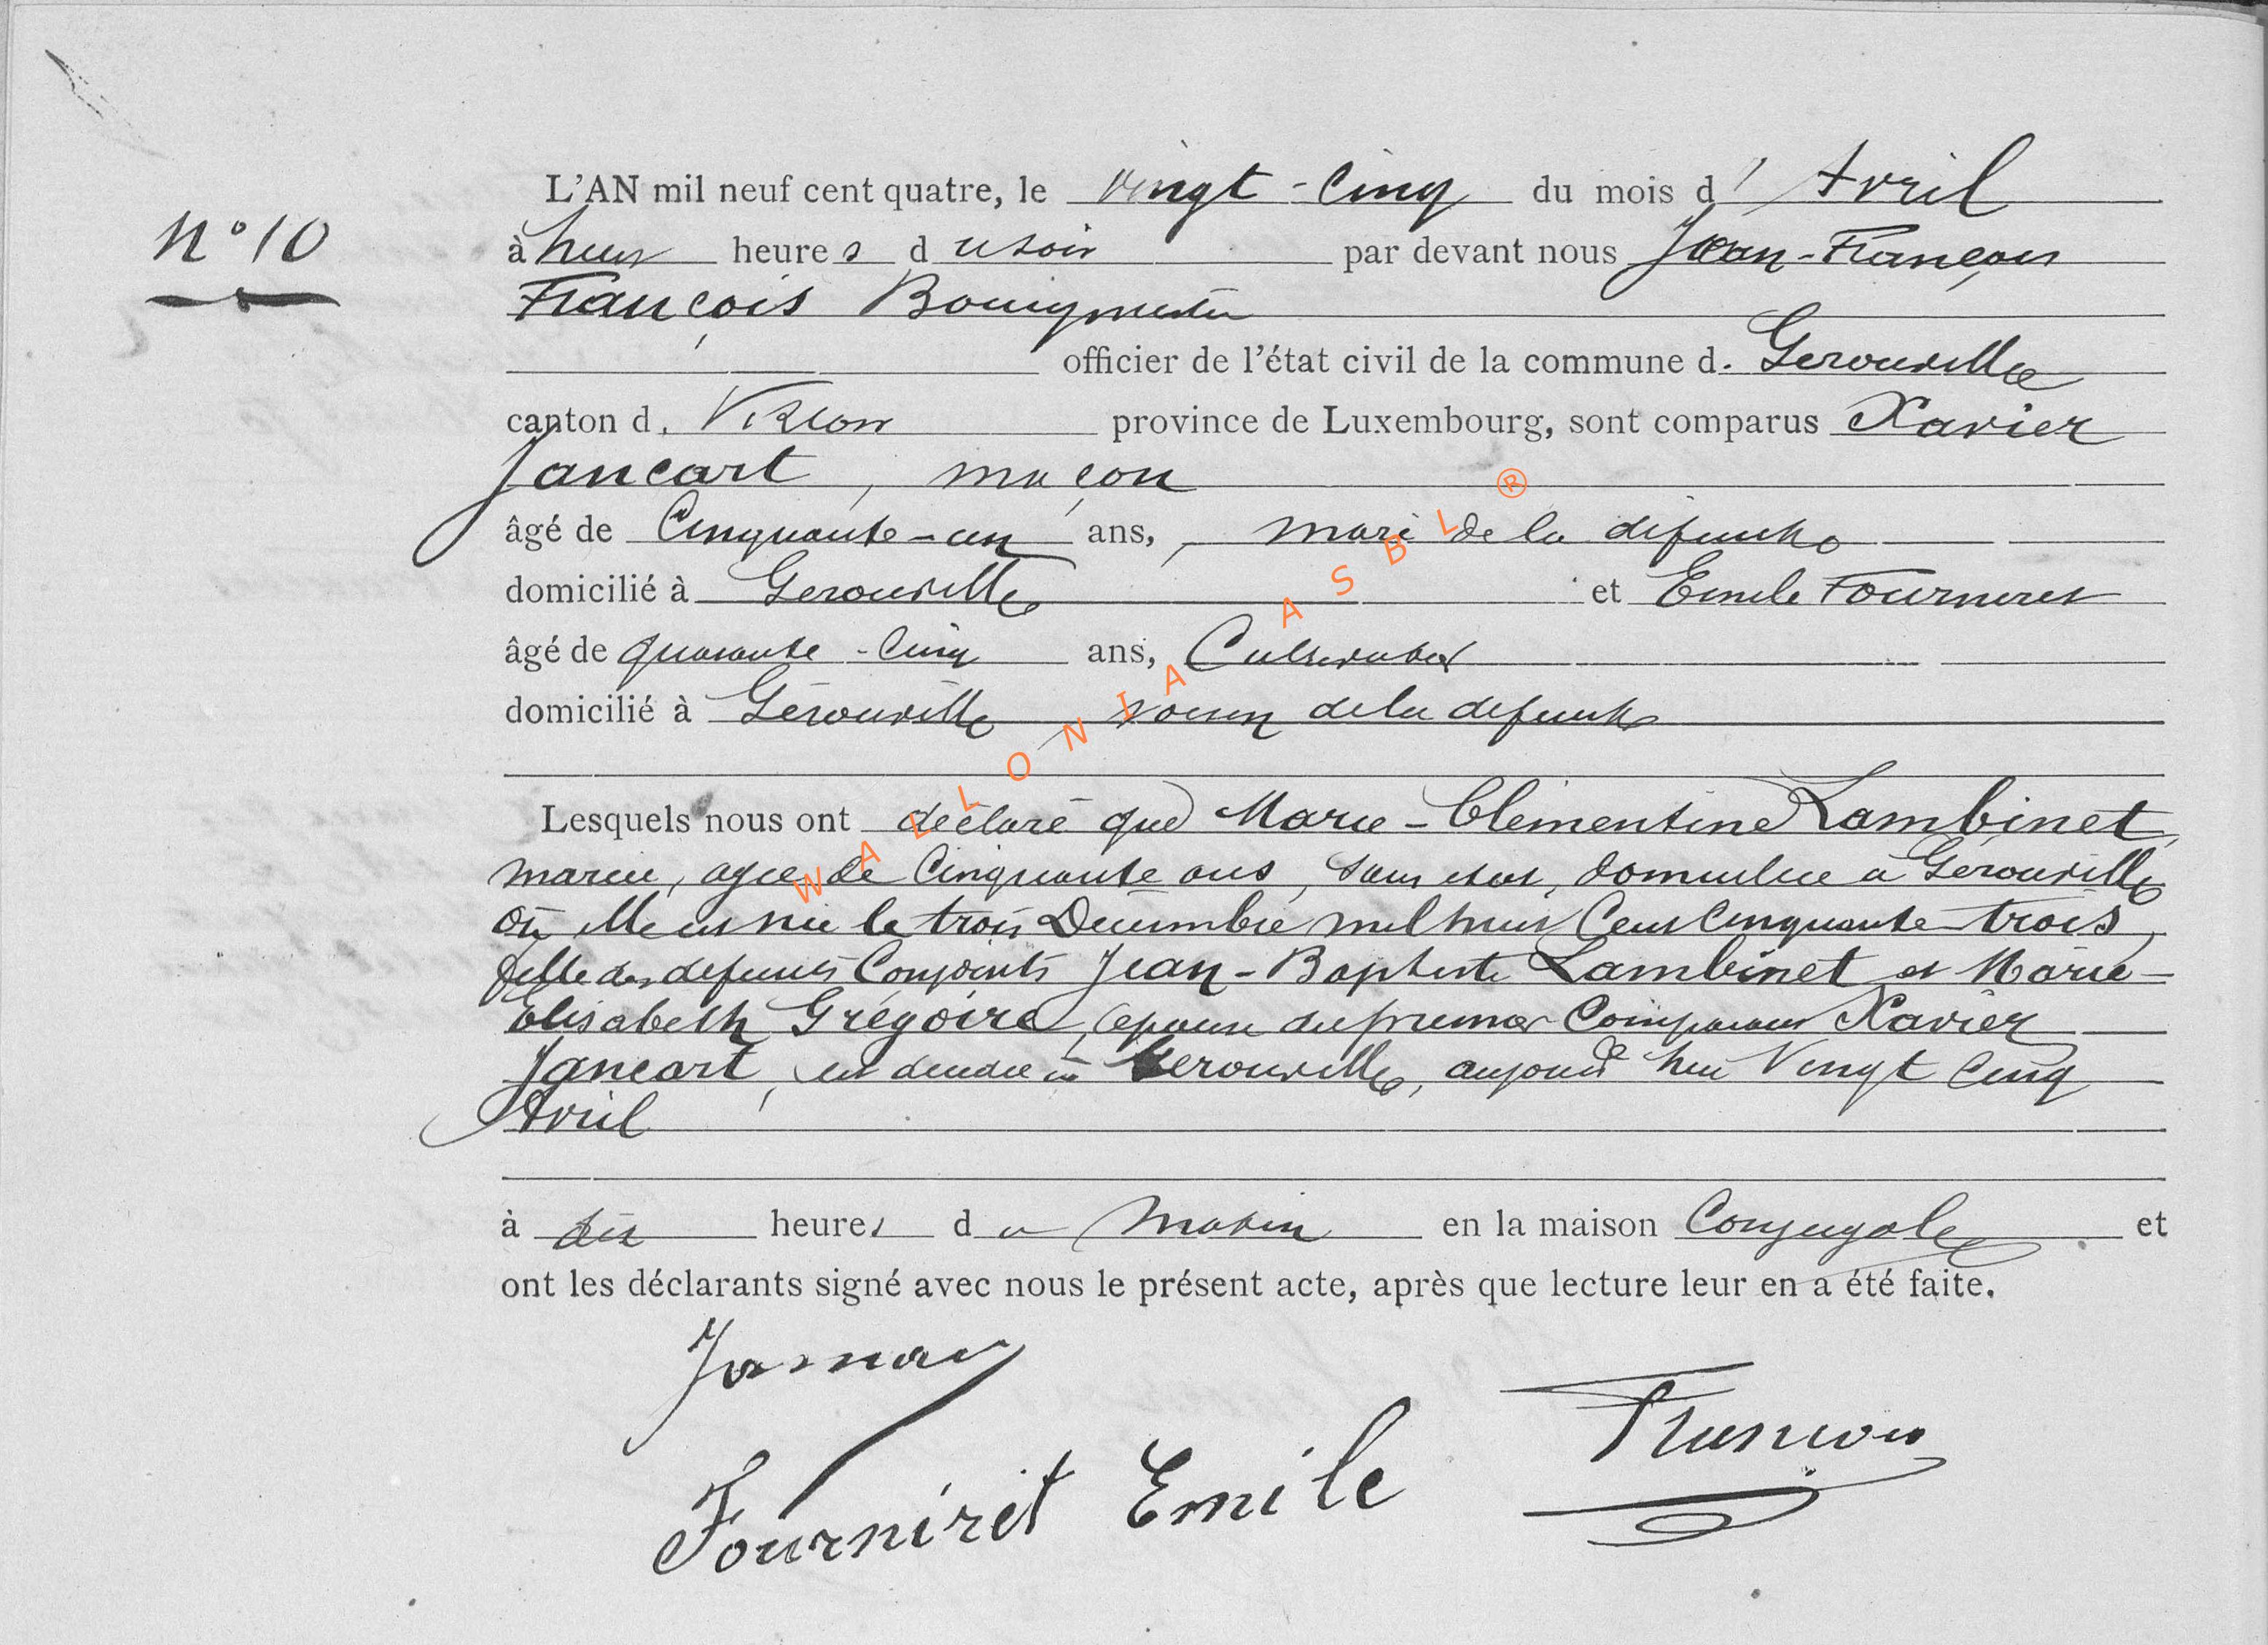 N° 10
L'AN mil neuf cent quatre, le vingt-cinq du mois d'Avril
à huit heures du soir par devant nous Jean-François
François Bourgmestre
officier de l'état civil de la commune d. Gerouville
canton d. Virton province de Luxembourg, sont comparus Xavier
Jancart, maçon
âgé de Cinquante-un ans, mari de la défunte
domicilié à Gerouville et Emile Fourniret
âgé de quarante-cinq ans, Cultivateur
domicilié à Gérouville voisin de la defunte
Lesquels nous ont déclaré que Marie-Clémentine Lambinet,
mariée, agée de Cinquante ans, sans etat, domiciliée à Gérouville
où elle est née le trois Décembre mil huit Cent Cinquante-trois,
fille des defunts Conjoints Jean-Baptiste Lambinet et Marie-
Elisabeth Grégoire, épouse du premier Comparant Xavier
Jancart, est décédée à Gerouville, aujourd'hui Vingt Cinq
Avril
à dix heures du matin en la maison Conjugale et
ont les déclarants signé avec nous le présent acte, après que lecture leur en a été faite.
Fourniret Emile
WALLONIA ASBL ®